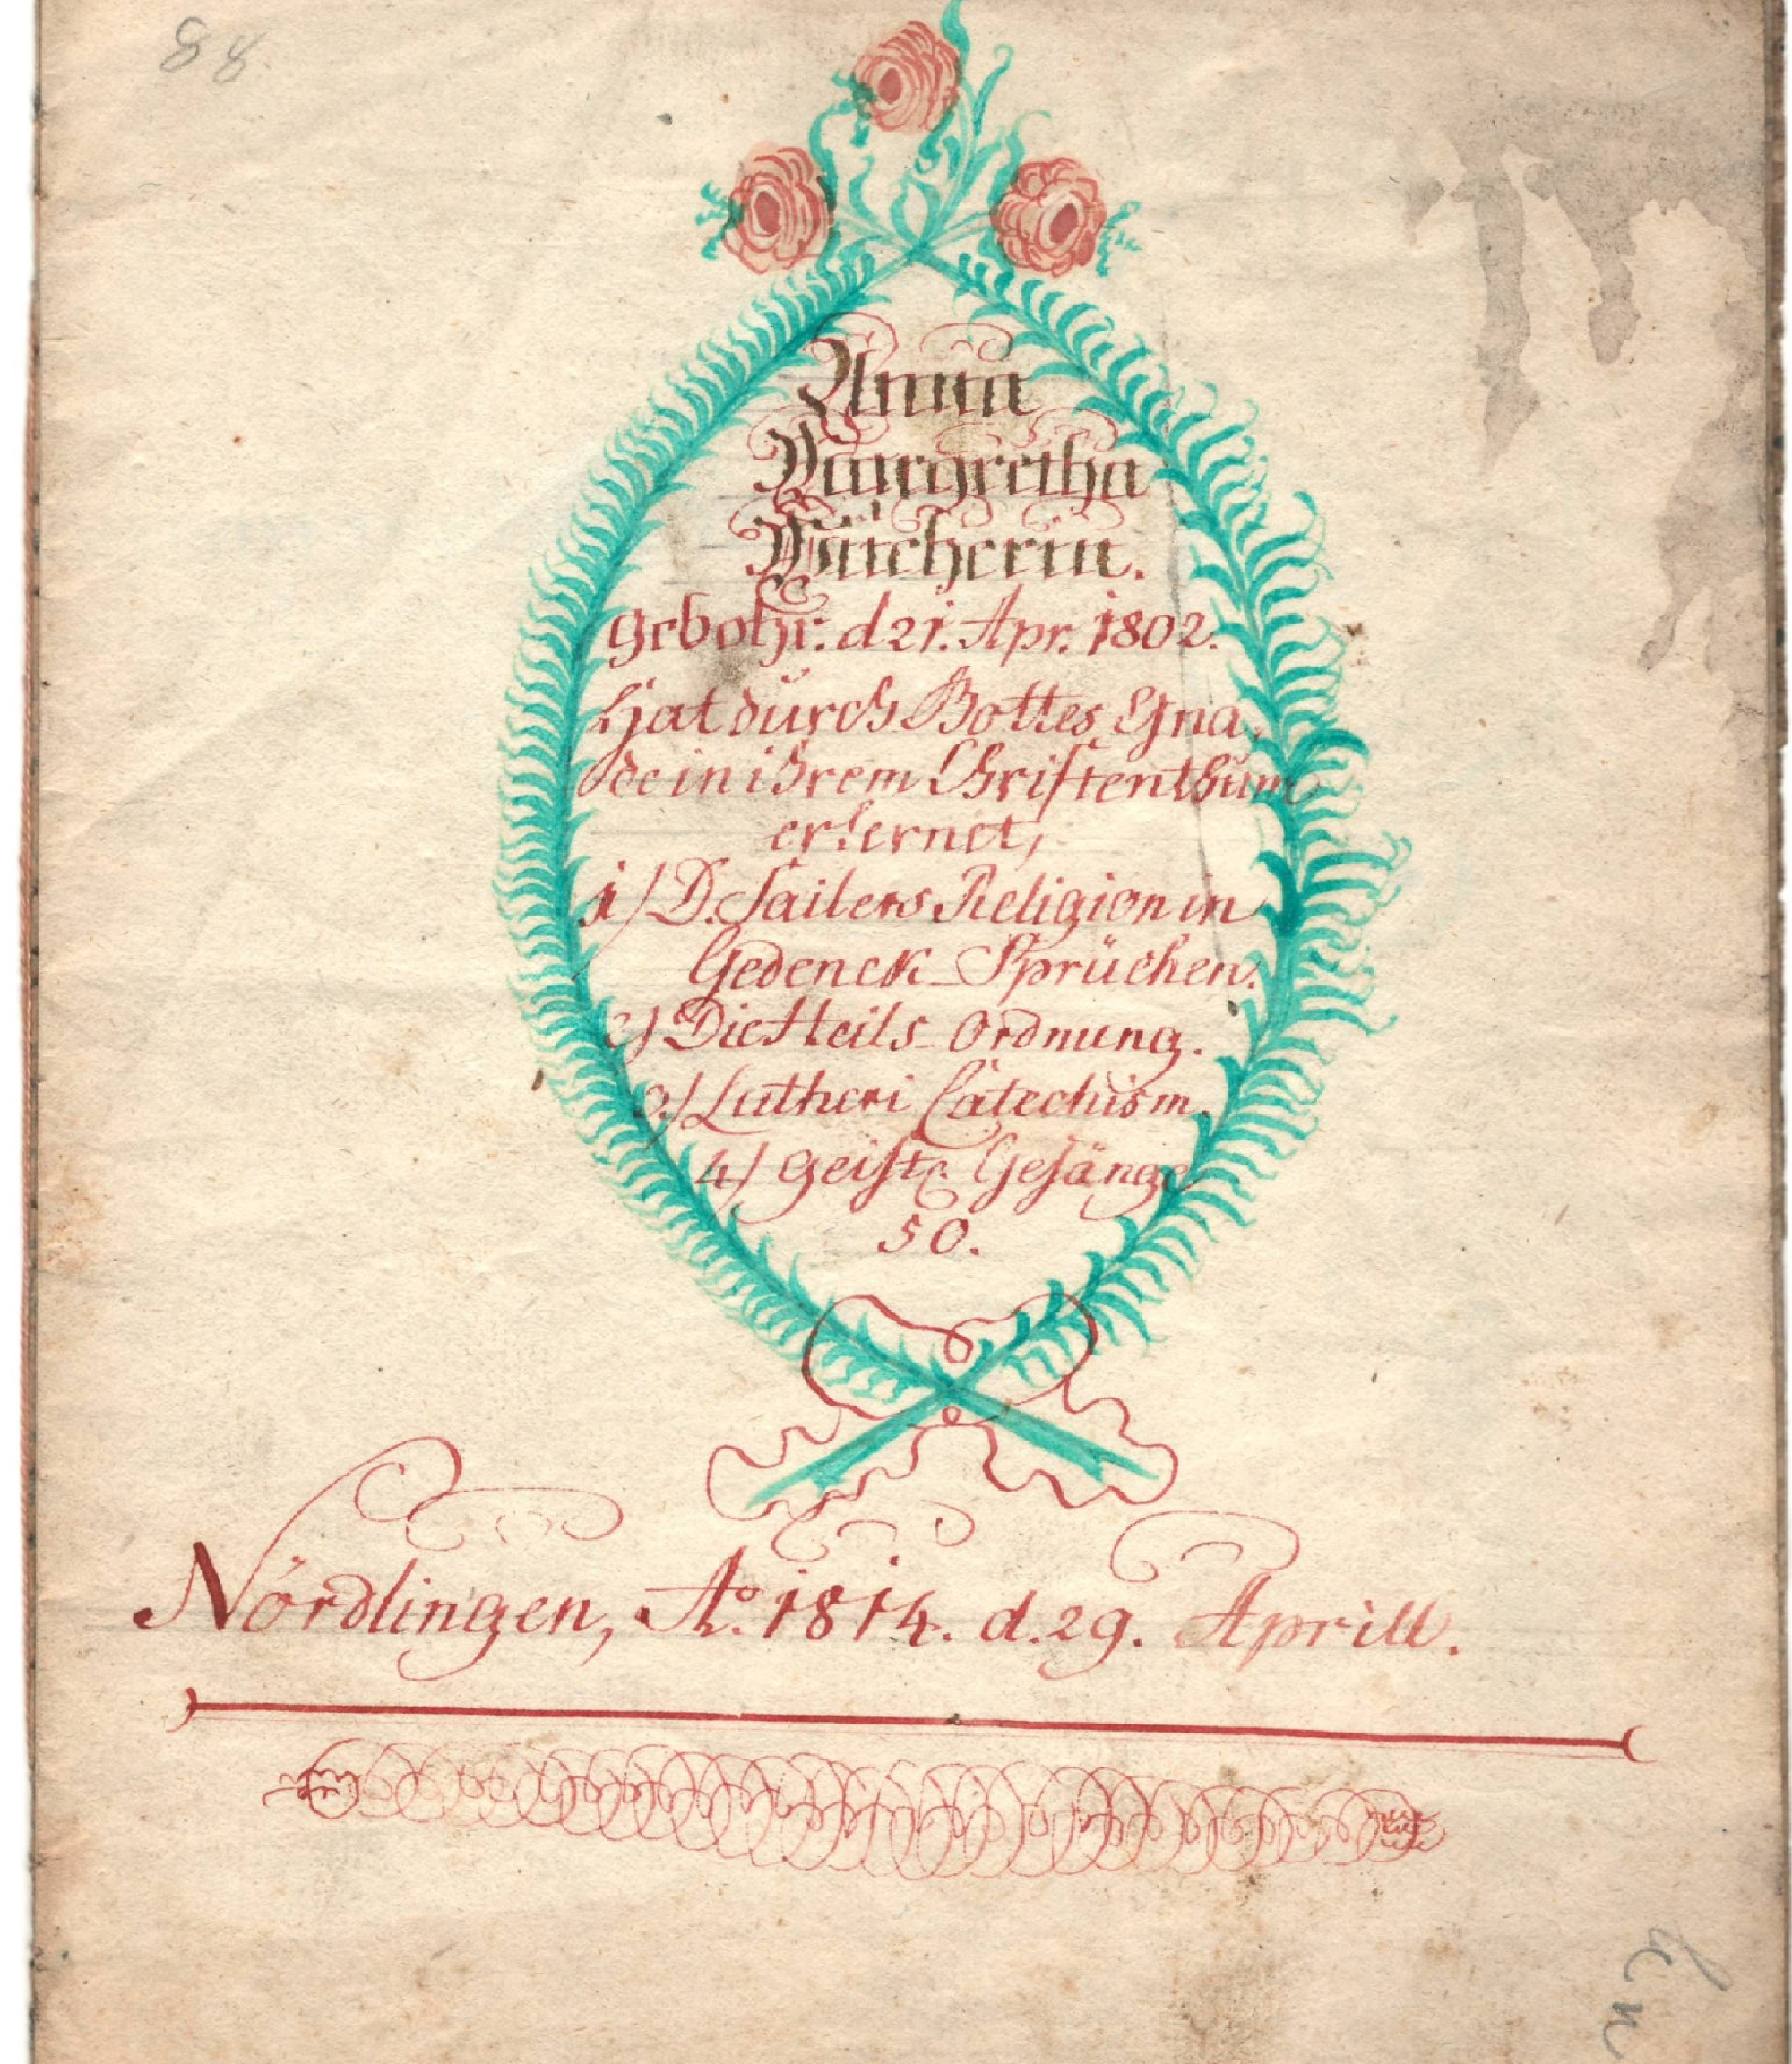 88.
Anna
Margretha
gebohr. d 21. Apr. 1802.
Hat durch Gottes Gna,
de in ihrem Christenthum
erlernet,
1) D. Sailers Religion in
Gedenck-Sprüchen.
2) Die Heils-Ordnung.
3.) Lutheri Catechism.
4) Geistl. Gesänge
50.
Nördlingen, Ao. 1814. d. 29. Aprill.